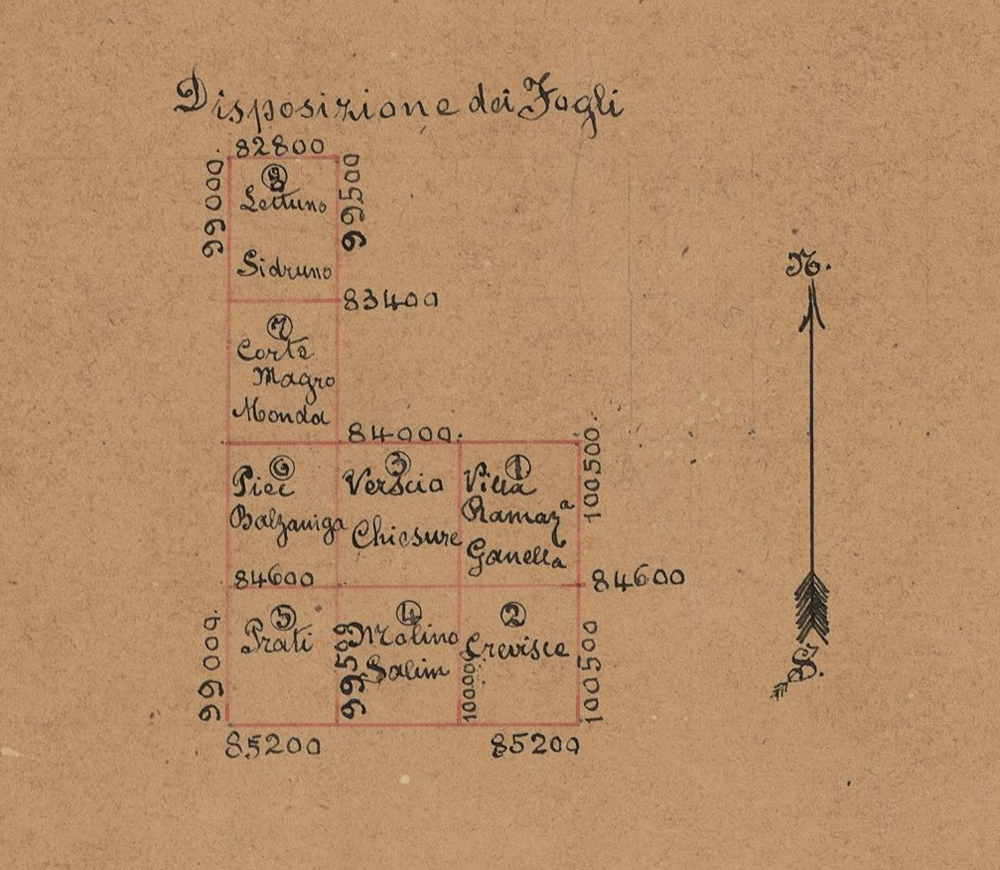 Disposizione dei Fogli
82800
99000.
99500
8
Lettuno
Sidruno
83400
7
Corte
Magro
Monda
84000.
100500.
6
Piec
Balzaniga
3
Verscio
Chiesure
1
Villa
Ramazª
Ganella
84600
84600
99000.
5
Prati
99500
4
Molino
Salim
100000
2
Crevisce
100500
85200
85200
N.
S.